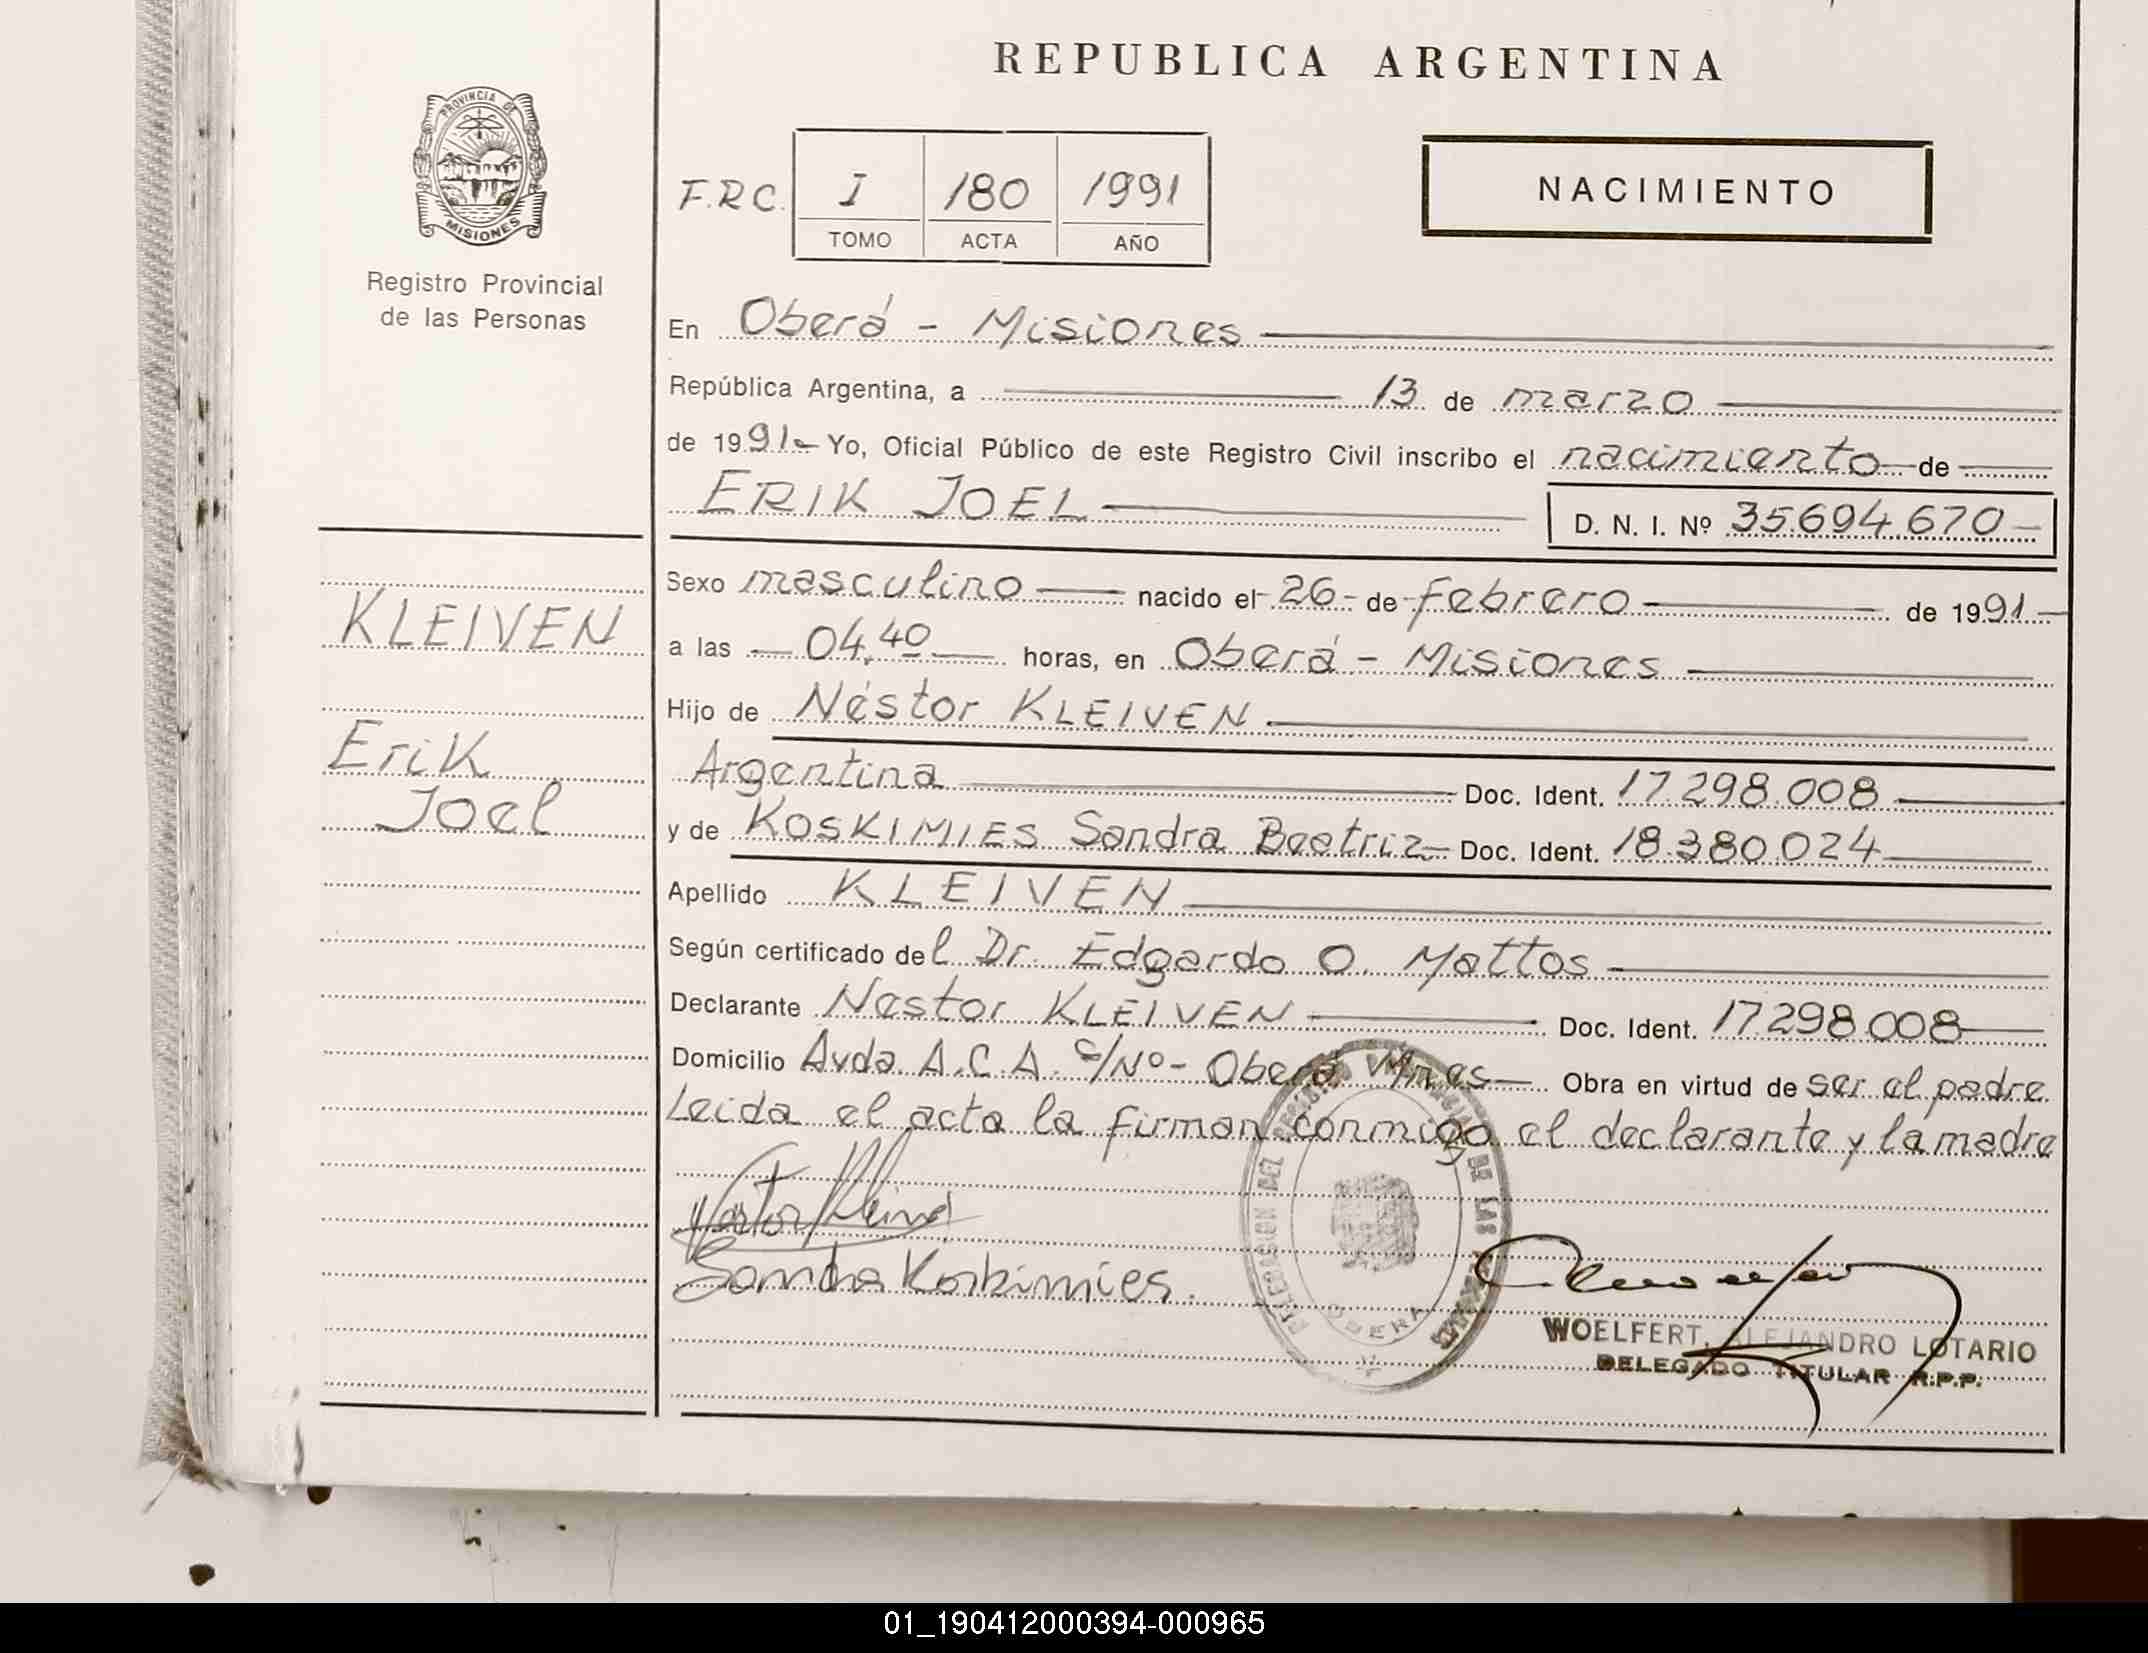 REPUBLICA ARGENTINA
PROVINCIA DE
MISIONES
Registro Provincial
de las Personas
F.R.C. I 180 1991
TOMO ACTA AÑO
NACIMIENTO
En Oberá - Misiones
República Argentina, a 13 de marzo
de 1991.- Yo, Oficial Público de este Registro Civil inscribo el nacimiento de
ERIK JOEL D. N. I. Nº 35.694.670
KLEIVEN
Erik
Joel
Sexo masculino nacido el 26 de febrero de 1991
a las 04,40 horas, en Oberá - Misiones
Hijo de Néstor KLEIVEN
Argentina Doc. Ident. 17.298.008
y de KOSKIMIES Sandra Beatriz Doc. Ident. 18.380.024
Apellido KLEIVEN
Según certificado del Dr. Edgardo O. Mattos
Declarante Nestor KLEIVEN Doc. Ident. 17.298.008
Domicilio Avda A.C.A. S/Nº - Oberá Mnes Obra en virtud de ser el padre.
Leida el acta la firman conmigo el declarante y la madre
Sandra Koskimies.
DELEGACION DEL REGISTRO PROVINCIAL DE LAS PERSONAS
OBERA
WOELFERT, ALEJANDRO LOTARIO
DELEGADO TITULAR R.P.P.
01_190412000394-000965